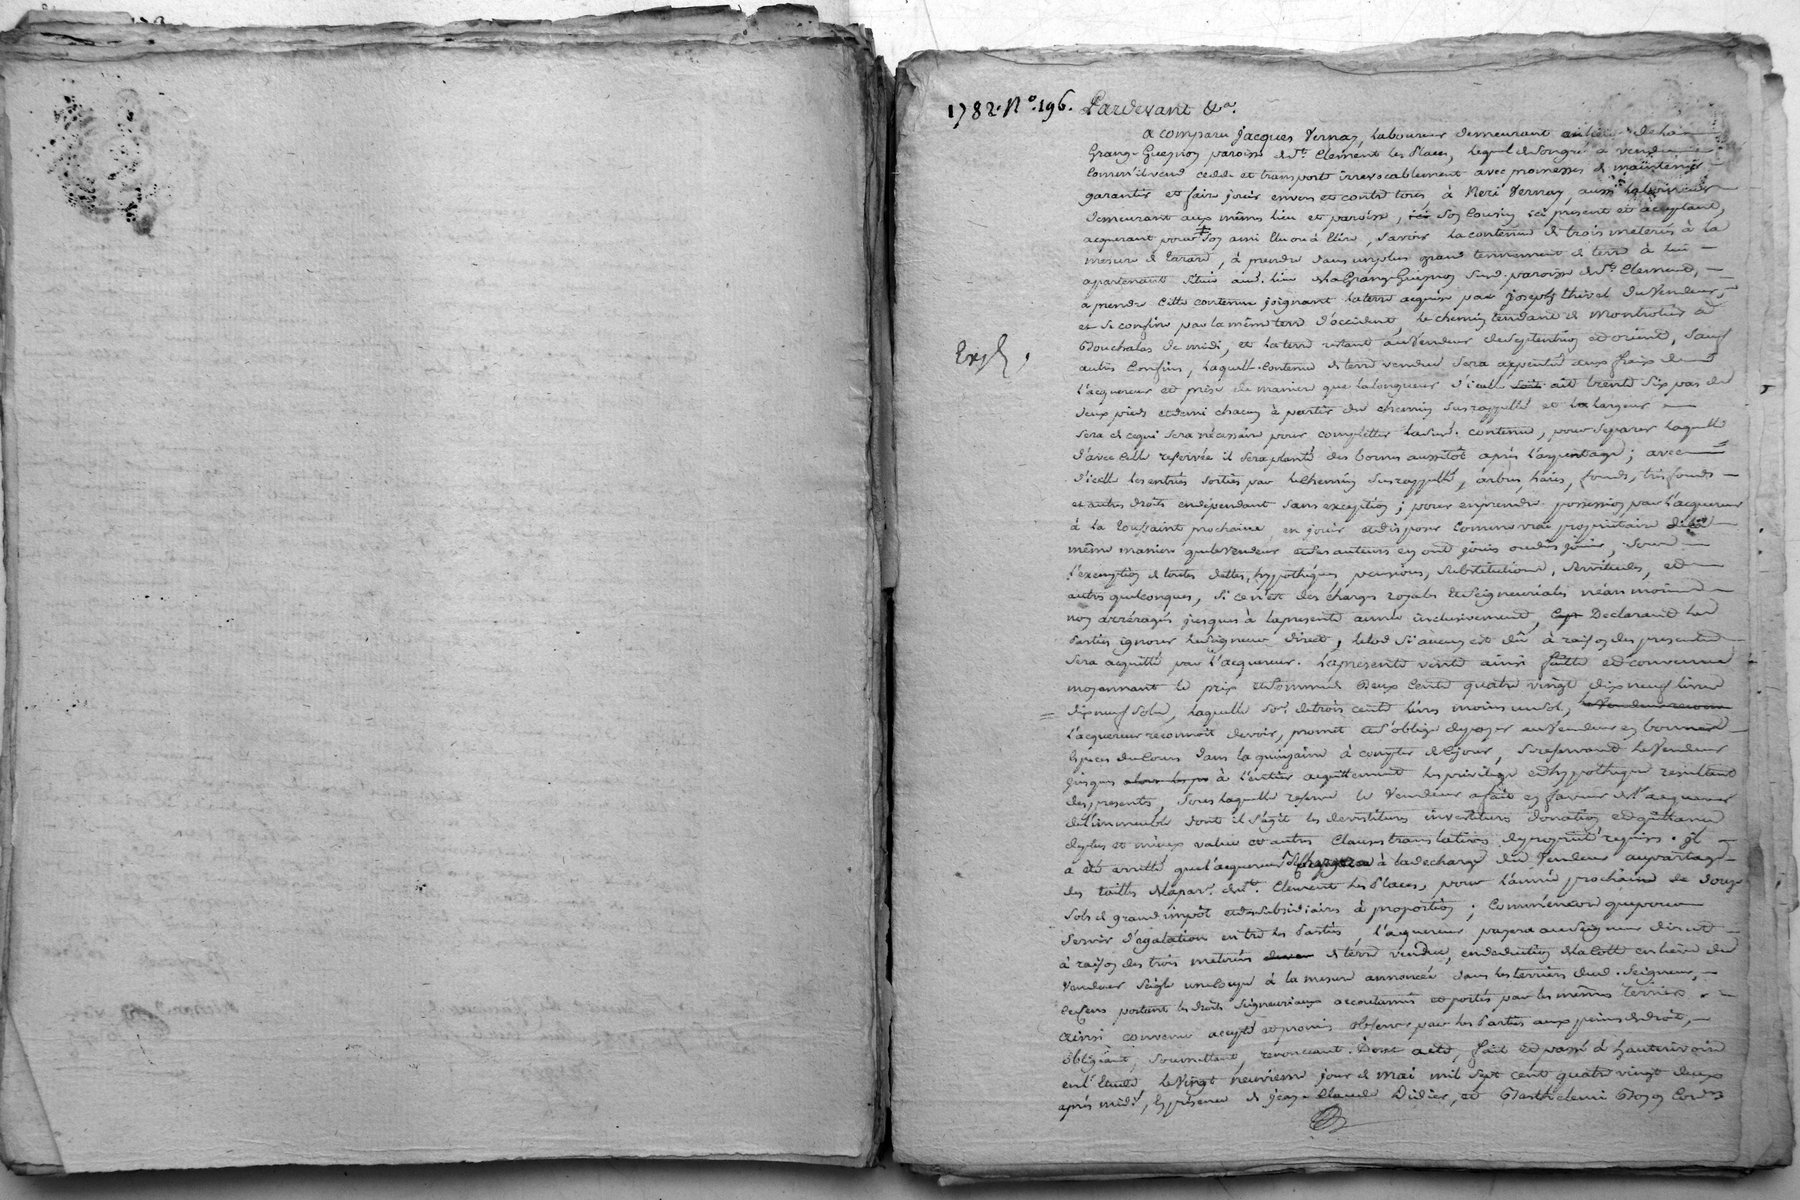 1782. No. 196. Pardevant &a.
a comparu Jacques Vernay, Laboureur demeurant au lieu de La
Grange Guegnon paroisse de St. Clement les Places, lequel de son gré a vendu
comm'il vend cedde et transporte irrevocablement avec promesses de maintenir
garantir et faire jouir envers et contre tous, à Neri Vernay, aussi Laboureur
demeurant aux mêmes lieu et paroisse, son Cousin ici present et acceptant,
acquerant pour son ami Elu ou à Elire, savoir la contenue de trois meterés à la
mesure de Tarare, à prendre dans un plus grand tennement de terre à lui
appartenant situé aud. lieu de la Grange Guegnon sud. paroisse de St. Clement,
à prendre cette contenue joignant la terre acquise par Joseph thivel du Vendeur,
et se confine par la même terre d'occident, le chemin tendant de Montrotier à
de midi, et la terre restant au Vendeur de septentrion et orient, sauf
autres confins, laquelle contenue de terre vendue sera arpentée aux fraix de
l'acquereur et prise de maniere que la longueur d'icelle ait trente six pas de
deux pieds et demi chacun à partir du chemin susrappellé et la largeur
sera de ce qui sera nécessaire pour completter lad. contenue, pour separer laquelle
d'avec celle reservée il sera planté des bornes aussitôt après l'arpentage; avec
d'icelle les entrées sorties par le chemin susrappellé, arbres, haies, fonds, tresfonds
et autres droits en dépendant sans exception; pour en prendre possession par l'acquereur
à la toussaint prochaine, en jouir et disposer comme vrai propriétaire de la
même maniere que le Vendeur et ses auteurs en ont joui ou dû jouir, sous
l'exemption de toutes dettes, hypothéques, pensions, substitutions, servitudes, et
autres quelconques, si ce n'est des charges royales et seigneuriales néanmoins
non arréragés jusques à la presente année inclusivement, Declarant les
Parties ignorer le seigneur direct, le lod si aucun est dû à raison des presentes
sera acquitté par l'acquereur. La presente vente ainsi faitte et convenue
moyennant le prix et somme de Deux Cents quatre vingt dix neuf livres
dix neuf sols, laquelle so.e de trois cents livres moins un sol,
l'acquereur reconnoit devoir, promet et s'oblige de payer au Vendeur en bonnes
Especes de Cours dans la quinzaine à compter de ce jour, se reservant le Vendeur
jusques à l'entier acquittement les privilége et hypotheque resultant
des presentes, sous laquelle reserve le Vendeur a fait en faveur de l'acquereur
de l'immeuble dont il s'agit les devestiture investiture donation et quittance
de plus et mieux value et autres Clauses translatives de propriété requises. Il
a été arretté que l'acquereur se chargera à la decharge du Vendeur au partage
des tailles de la par. de St. Clement les Places, pour l'année prochaine de douze
sols de grand impôt et des subsidiaires à proportion; comm'encore que pour
servir d'égalation entre les Parties l'acquereur payera au seigneur direct
à raison des trois meterés de terre vendue, en deduction de la cotte entiere du
Vendeur seigle une coupe à la mesure annoncée dans les terriers dud. seigneur,
le cens portant les droits seigneuriaux accoutumés et portés par les mêmes terriers.
Ainsi convenu accepté et promis observer par les Parties aux peines de droit,
obligeant, soumettant, renonceant. Dont acte, fait et passé à hauterivoire
en l'Etude, le Vingt neuvieme jour de Mai mil sept cent quatre vingt deux
après midi, En présence de Jean Claude Didier, et Barthelemi